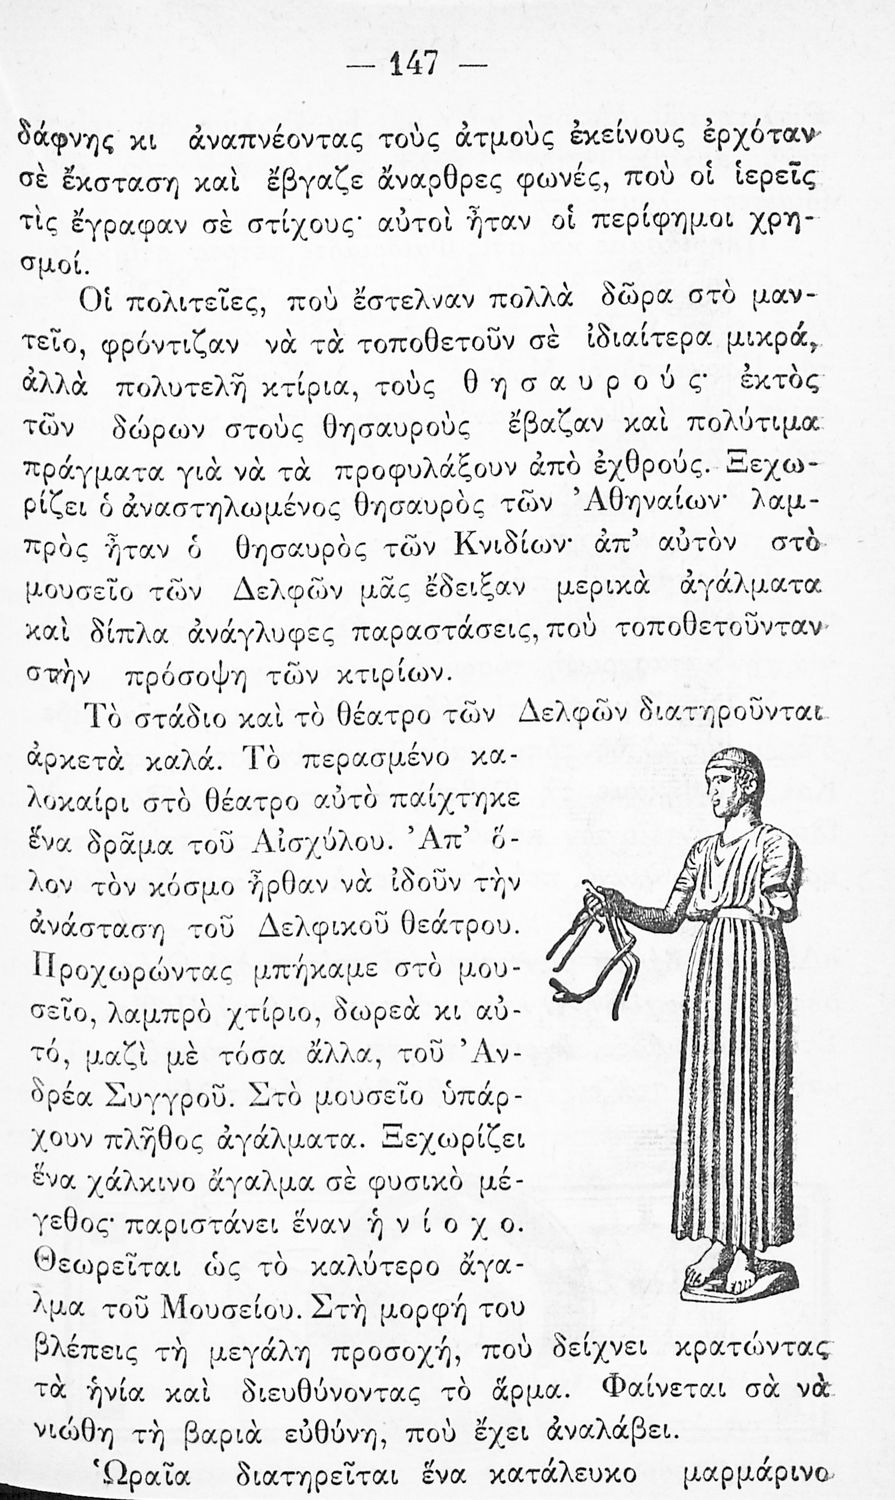 — 147 —
δάφνης κι ἀναπνέοντας τοὺς ἀτμοὺς ἐκείνους ἐρχόταν
σὲ ἔκσταση καὶ ἔβγαζε ἄναρθρες φωνές, ποὺ οἱ ἱερεῖς
τὶς ἔγραφαν σὲ στίχους· αὐτοὶ ἦταν οἱ περίφημοι χρη-
σμοί.
Οἱ πολιτεῖες, ποὺ ἔστελναν πολλὰ δῶρα στὸ μαν-
τεῖο, φρόντιζαν νὰ τὰ τοποθετοῦν σὲ ἰδιαίτερα μικρά,
ἀλλὰ πολυτελῆ κτίρια, τοὺς θ η σ α υ ρ ο ύ ς· ἐκτὸς
τῶν δώρων στοὺς θησαυροὺς ἔβαζαν καὶ πολύτιμα
πράγματα γιὰ νὰ τὰ προφυλάξουν ἀπὸ ἐχθρούς. Ξεχω-
ρίζει ὁ ἀναστηλωμένος θησαυρὸς τῶν Ἀθηναίων· λαμ-
πρὸς ἦταν ὁ θησαυρὸς τῶν Κνιδίων· ἀπ’ αὐτὸν στὸ
μουσεῖο τῶν Δελφῶν μᾶς ἔδειξαν μερικὰ ἀγάλματα
καὶ δίπλα ἀνάγλυφες παραστάσεις, ποὺ τοποθετοῦνταν
στὴν πρόσοψη τῶν κτιρίων.
Τὸ στάδιο καὶ τὸ θέατρο τῶν Δελφῶν διατηροῦνται
ἀρκετὰ καλά. Τὸ περασμένο κα-
λοκαίρι στὸ θέατρο αὐτὸ παίχτηκε
ἕνα δρᾶμα τοῦ Αἰσχύλου. Ἀπ’ ὅ-
λον τὸν κόσμο ἦρθαν νὰ ἰδοῦν τὴν
ἀνάσταση τοῦ Δελφικοῦ θεάτρου.
Προχωρώντας μπήκαμε στὸ μου-
σεῖο, λαμπρὸ χτίριο, δωρεὰ κι αὐ-
τό, μαζὶ μὲ τόσα ἄλλα, τοῦ Ἀν-
δρέα Συγγροῦ. Στὸ μουσεῖο ὑπάρ-
χουν πλῆθος ἀγάλματα. Ξεχωρίζει
ἕνα χάλκινο ἄγαλμα σὲ φυσικὸ μέ-
γεθος· παριστάνει ἕναν ἡ ν ί ο χ ο.
Θεωρεῖται ὡς τὸ καλύτερο ἄγα-
λμα τοῦ Μουσείου. Στὴ μορφή του
βλέπεις τὴ μεγάλη προσοχή, ποὺ δείχνει κρατώντας
τὰ ἡνία καὶ διευθύνοντας τὸ ἅρμα. Φαίνεται σὰ νὰ
νιώθη τὴ βαριὰ εὐθύνη, ποὺ ἔχει ἀναλάβει.
Ὡραῖα διατηρεῖται ἕνα κατάλευκο μαρμάρινο